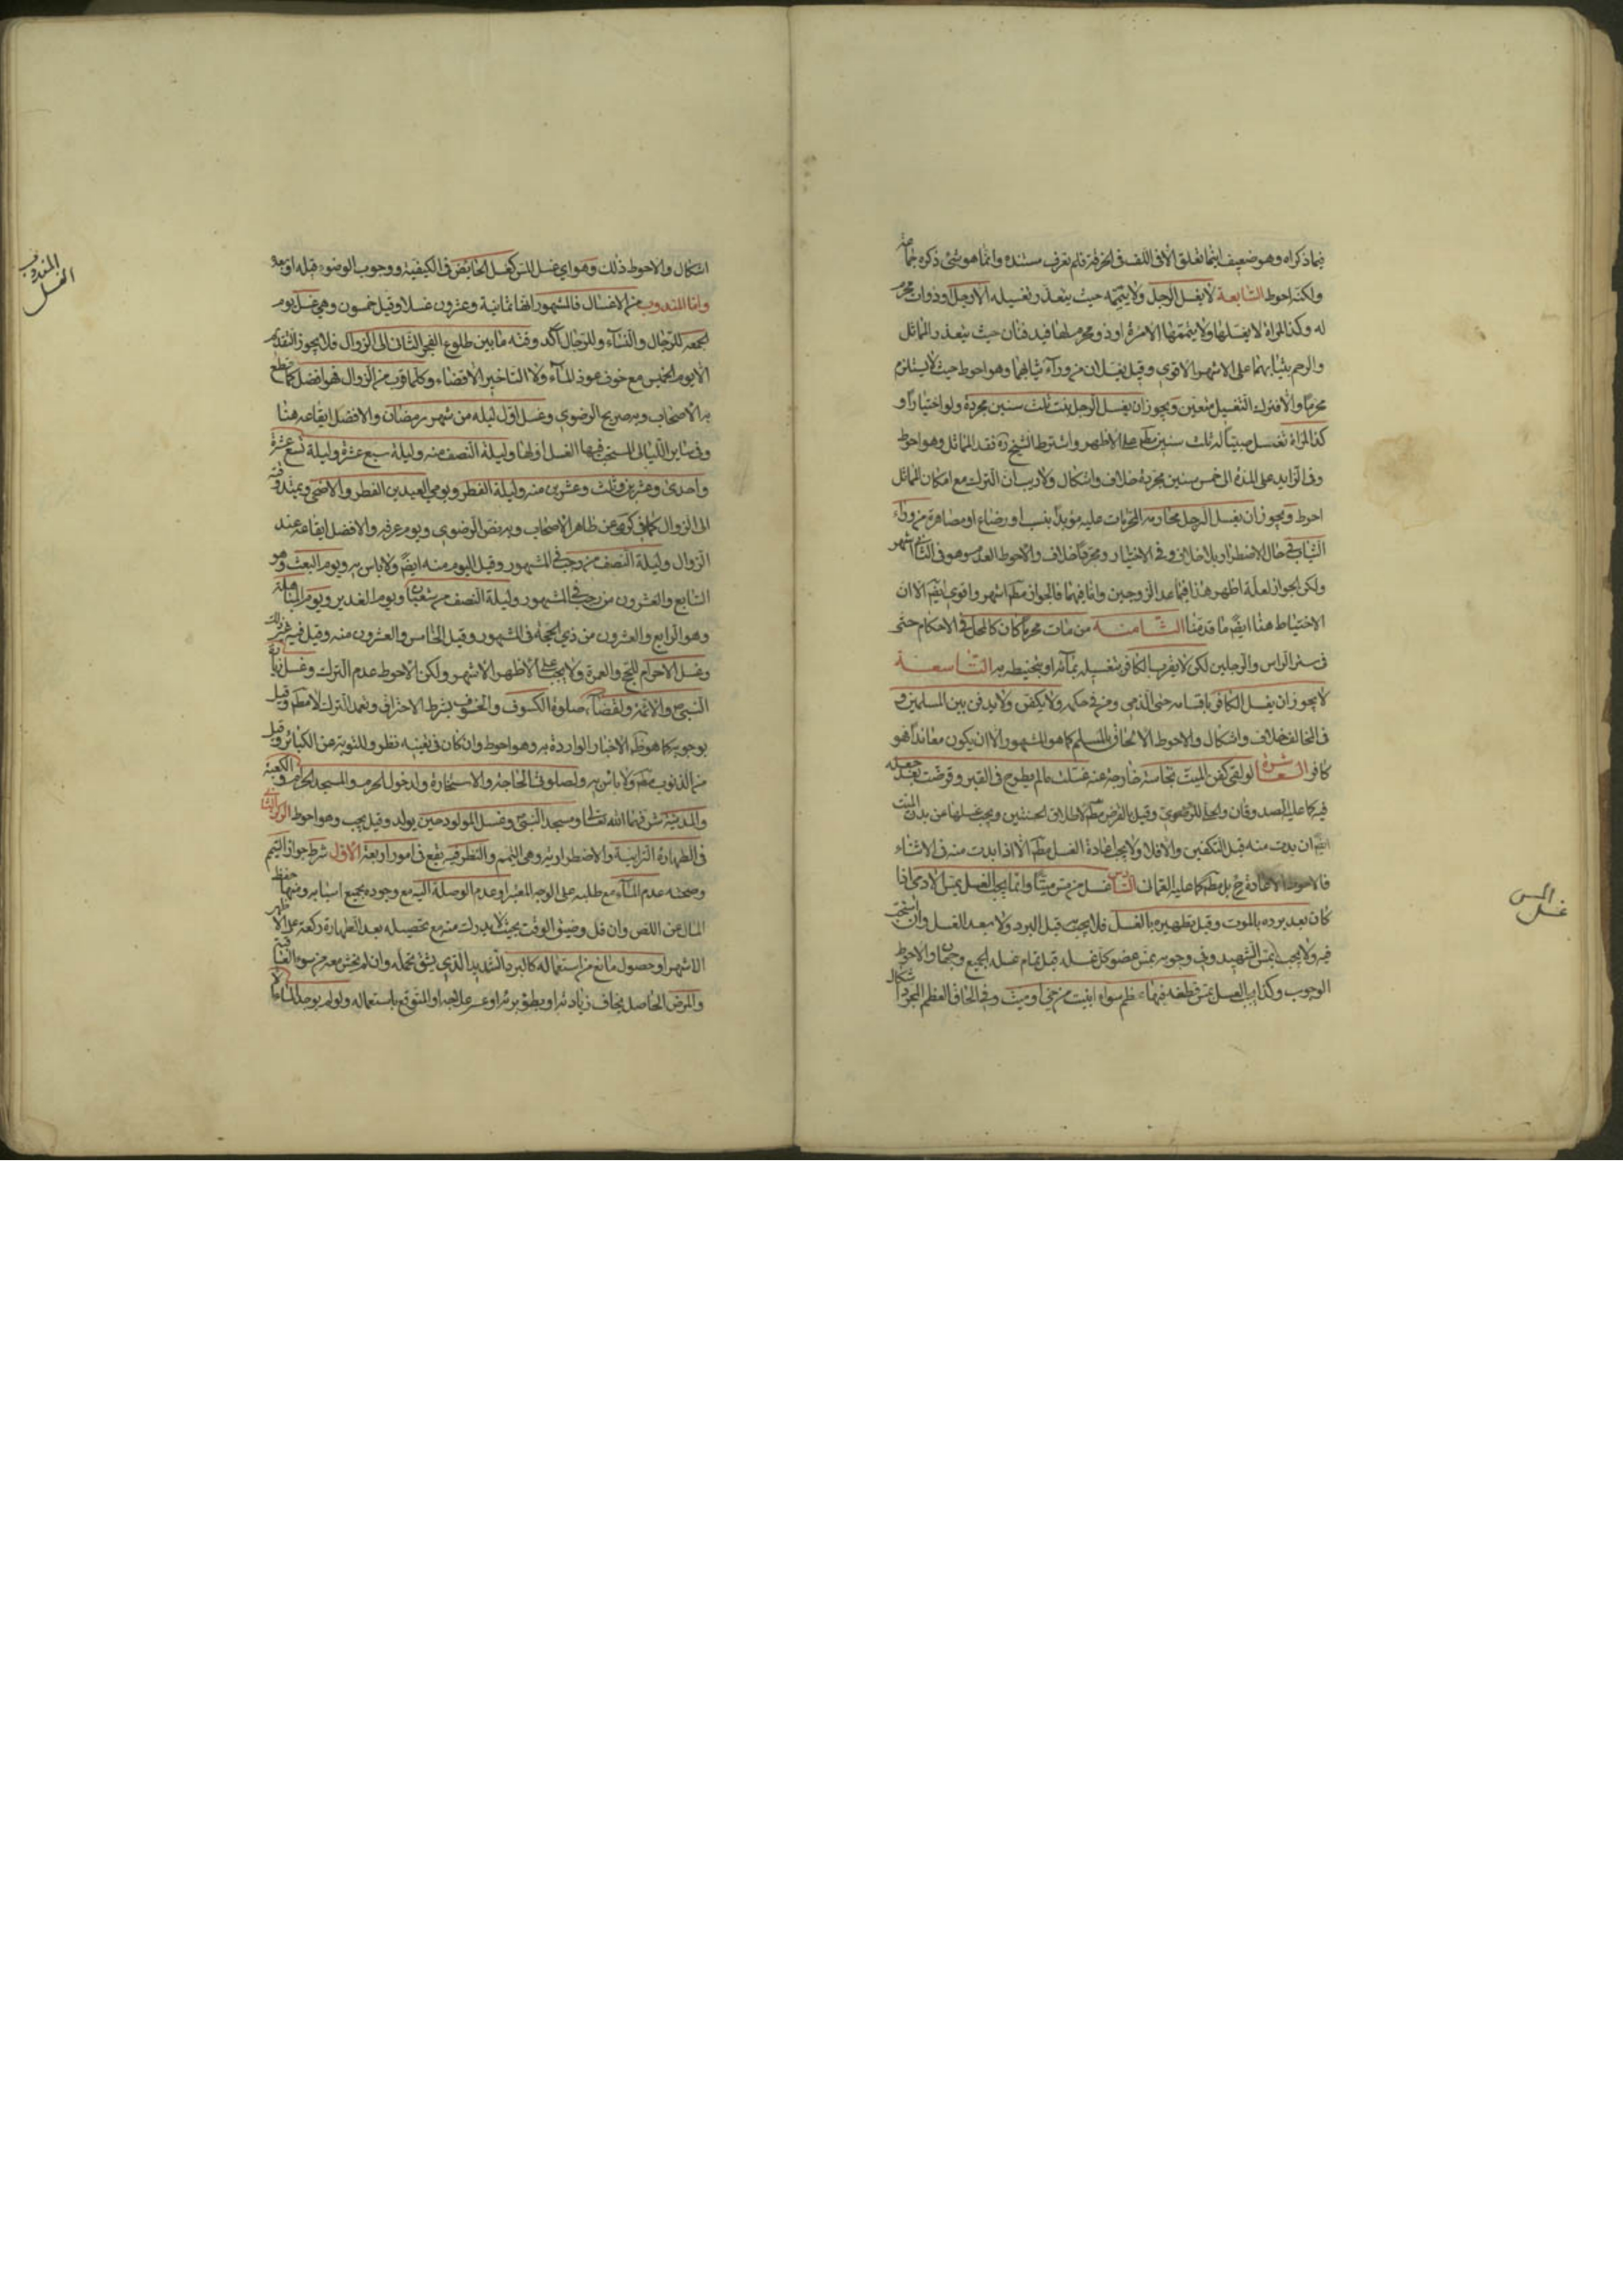 فيما ذكراه وهو ضعيف انما تعلق الا فى اللف فى الخرقة فلم نعرف مستنده وانما هو شئ ذكره جماعة
ولكنه احوط السابعة لا يغسل الرجل ولا ييممه حيث يتعذر تغسيله الا رجل او ذوات محرم
له وكذا المراة لا يغسلها ولا ييممها الا امرة او ذو محرم لها فيدفنان حيث يتعذر المماثل
والرحم بثيابهما على الاشهر الاقوى وقيل يغسلان من وراء ثيابهما وهو احوط حيث لا يستلزم
محرما والا فترك التغسيل متعين ويجوز ان يغسل الرجل بنت ثلث سنين مجردة ولو اختيارا و
كذا المراة تغسل صبيا له ثلث سنين مطم على الاظهر واشترط الشيخ ره فقد المماثل وهو احوط
وفى الزايد على المدة الى خمس سنين مجردة خلاف واشكال ولا ريب ان الترك مع امكان المماثل
احوط ويجوز ان يغسل الرجل محارمه المحرمات عليه مؤبدا بنسب او رضاع او مصاهرة من وراء
الثياب فى حال الاضطرار بلا خلاف وفى الاختيار ومجردا خلاف والاحوط العدم وهو فى الثانى اشهر
ولكن الجواز لعله اظهر هذا فيما عدا الزوجين واما فيهما فالجواز مطم اشهر واقوى ايضا الا ان
الاحتياط هنا ايضا ما قدمنا الثامنة من مات محرما كان كالمحل فى الاحكام حتى
فى ستر الراس والرجلين لكن لا يقرب الكافور بتغسيله بمائه او بتحنيطه به التاسعة
لا يجوز ان يغسل الكافر باقسامه حتى الذمى ومن فى حكمه ولا يكفن ولا يدفن بين المسلمين و
فى المخالف خلاف واشكال والاحوط الالحاق بالمسلم كما هو المشهور الا ان يكون معاندا فهو
كافر العاشرة لو لقى كفن الميت نجاسة خارجة عنه غسلت ما لم يطرح فى القبر وقرضت بعد جعله
فيه كما عليه الصدوقان وقيل بالقرض مطم لاطلاق الحسنتين ويجب غسلها من بدن الميت
ايضا ان بدت منه قبل التكفين والا فلا ولا يجب اعادة الغسل مطم الا اذا بدت منه فى الاثناء
فالاحوط الاعادة ح بل مطم كما عليه العمانى السادس غسل من مس ميتا وانما يجب الغسل بمس الادمى اذا
كان بعد برده بالموت وقبل تطهيره بالغسل فلا يجب قبل البرد ولا بعد الغسل وان استحب
فيه ولا يجب بمس الشهيد وفى وجوبه بمس عضو كمل غسله قبل تمام غسله الجميع وجهان والاحوط
الوجوب وكذا يجب الغسل بمس قطعة فيها عظم سواء ابينت من حى او ميت وفى الحاق العظم المجرد اشكال
المس
غسل
اشكال والاحوط ذلك وهو اى غسل المس كغسل الحايض فى الكيفية ووجوب الوضوء قبله او بعده
واما المندوب من الاغسال فالمشهور انها ثمانية وعشرون غسلا وقيل خمسون وهى غسل يوم
الجمعه للرجال والنساء وللرجال آكد وقته ما بين طلوع الفجر الثانى الى الزوال فلا يجوز التقديم
الا يوم الخميس مع خوف عوز الماء ولا التاخير الا قضاء وكلما قرب من الزوال فهو افضل كما قطع
به الاصحاب وبه صريح الرضوى وغسل اول ليله من شهر رمضان والافضل ايقاعه هنا
وفى ساير الليالى المستحب فيها الغسل اولها وليلة النصف منه وليلة سبع عشرة وليلة تسع عشرة
واحدى وعشرين وثلث وعشرين منه وليلة الفطر ويومى العيدين الفطر والاضحى ويمتد وقته
الى الزوال كما فى كرى عن ظاهر الاصحاب وبه نص الرضوى ويوم عرفه والافضل ايقاعه عند
الزوال وليلة النصف من رجب فى المشهور وقيل اليوم منه ايضا ولا باس به ويوم البعث وهو
السابع والعشرون من رجب فى المشهور وليلة النصف من شعبان ويوم الغدير ويوم المباهلة
وهو الرابع والعشرون من ذى الحجة فى المشهور وقيل الخامس والعشرون منه وقيل فيه غير ذلك
وغسل الاحرام للحج والعمرة ولا يجب على الاظهر الاشهر ولكن الاحوط عدم الترك وغسل زيارة
النبى ص والائمة ولقضاء صلوة الكسوف والخسوف بشرط الاحتراق وتعمد الترك لا مطم وقيل
بوجوبه كما هو ظم الاخبار الواردة به وهو احوط وان كان فى تعينه نظر وللتوبة عن الكبائر وقيل
من الذنوب مطم ولا باس به ولصلوتى الحاجة والاستخارة ولدخول الحرم والمسجد الحرام والكعبة
والمدينة شرفهما الله تعالى ومسجد النبى ص وغسل المولود حين يولد وقيل يجب وهو احوط الركن الثالث
فى الطهارة الترابية والاضطرارية وهى التيمم والنظر فيه يقع فى امور اربعة الاول شرط جواز التيمم
وصحته عدم الماء مع طلبه على الوجه المعتبر او عدم الوصلة اليه مع وجوده بجميع اسبابه ومنها حفظ
المال من اللص وان قل وضيق الوقت بحيث لا يدرك منه مع تحصيله بعد الطهارة ركعة على الاظهر
الاشهر او حصول مانع من استعماله كالبرد الشديد الذى يشق تحمله وان لم يخش معه من سوء العاقبة
والمرض الحاصل يخاف زيادته او بطؤ برئه او عسر علاجه او المتوقع باستعماله ولو لم يوجد الماء الا
المندوب
الغسل